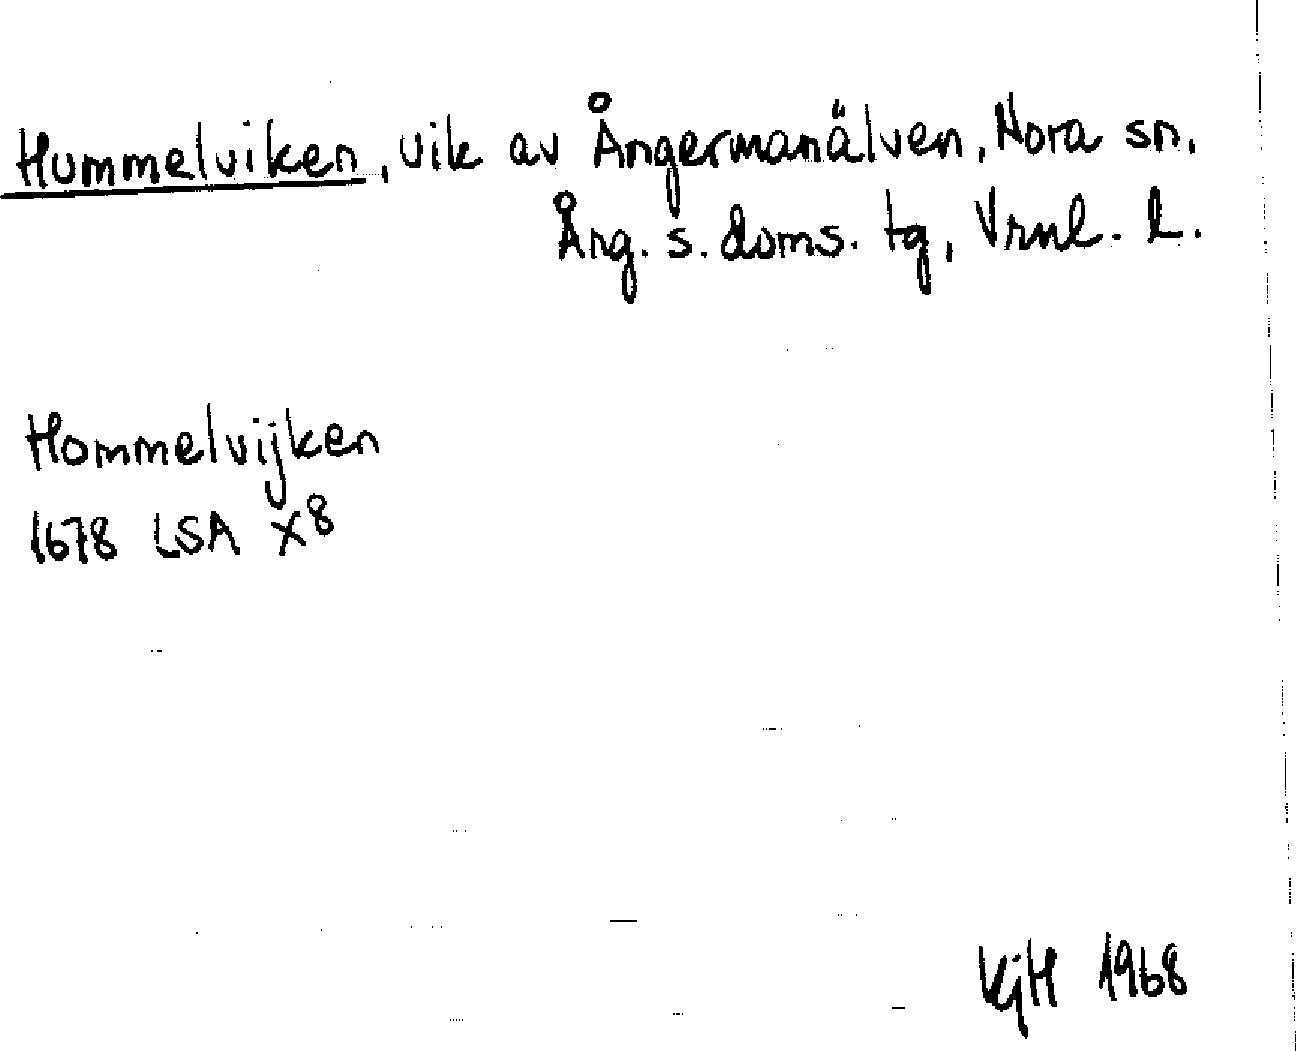 Hummelviken, vik av Ångermanälven, Nora sn.
Ång. s. doms. tg, Vrnl. l.
Hommelvijken
1678 LSA X8
KjH 1968